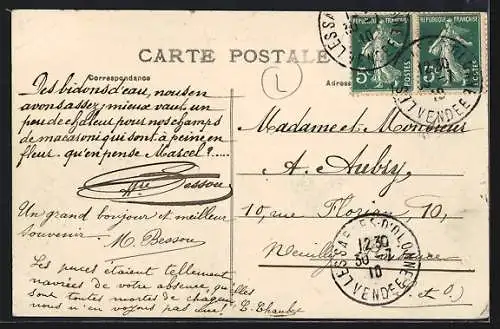 CARTE POSTALE
Correspondance
Adresse
L
REPUBLIQUE FRANÇAISE
REPUBLIQUE FRANÇAISE
5c POSTES
5c POSTES
LES SABLES-D'OLONNE
12 30
30 -7
10
VENDEE
Des bidons d'eau, nous en
avons assez, mieux vaut un
peu de chaleur pour nos champs
de macaroni qui sont à peine en
fleur. qu'en pense Marcel? .....
Besson
Un grand bonjour et meilleur
souvenir
M. Besson
Les puces étaient tellement
navrées de votre absence, qu'elles
sont toutes mortes de chagrin,
nous n'en voyons pas une!
Madame et Monsieur
A. Aubry
10, rue Florian, 10,
Neuilly
LES SABLES-D'OLONNE
12 30
30 -7
10
VENDEE